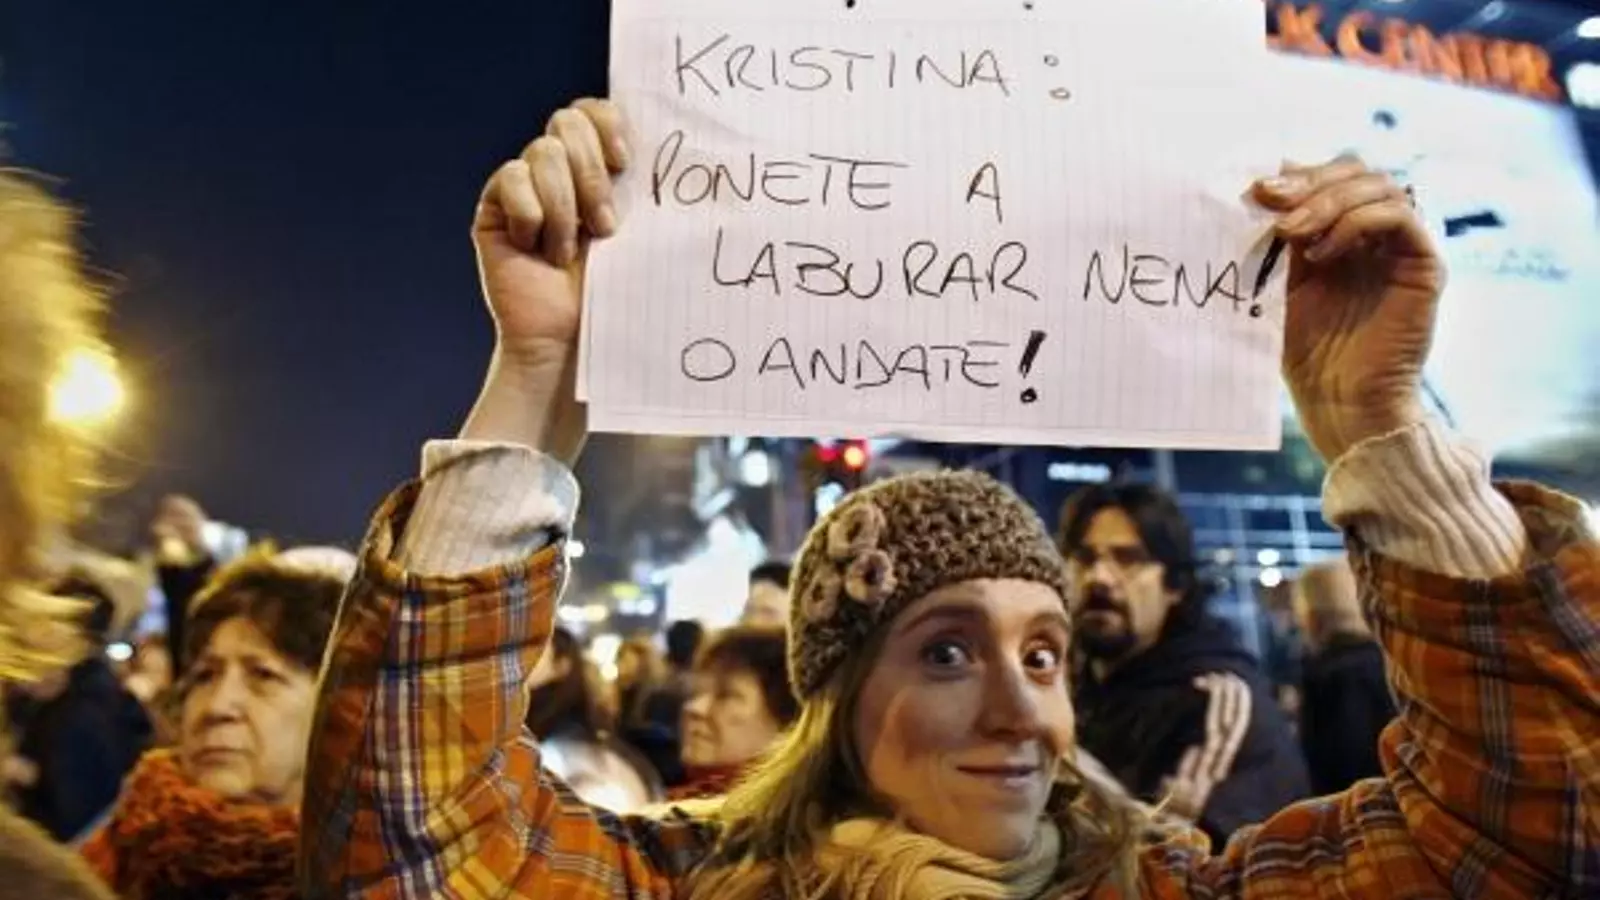 KRISTINA:
PONETE A
LABURAR NENA!
O ANDATE!
CENTER